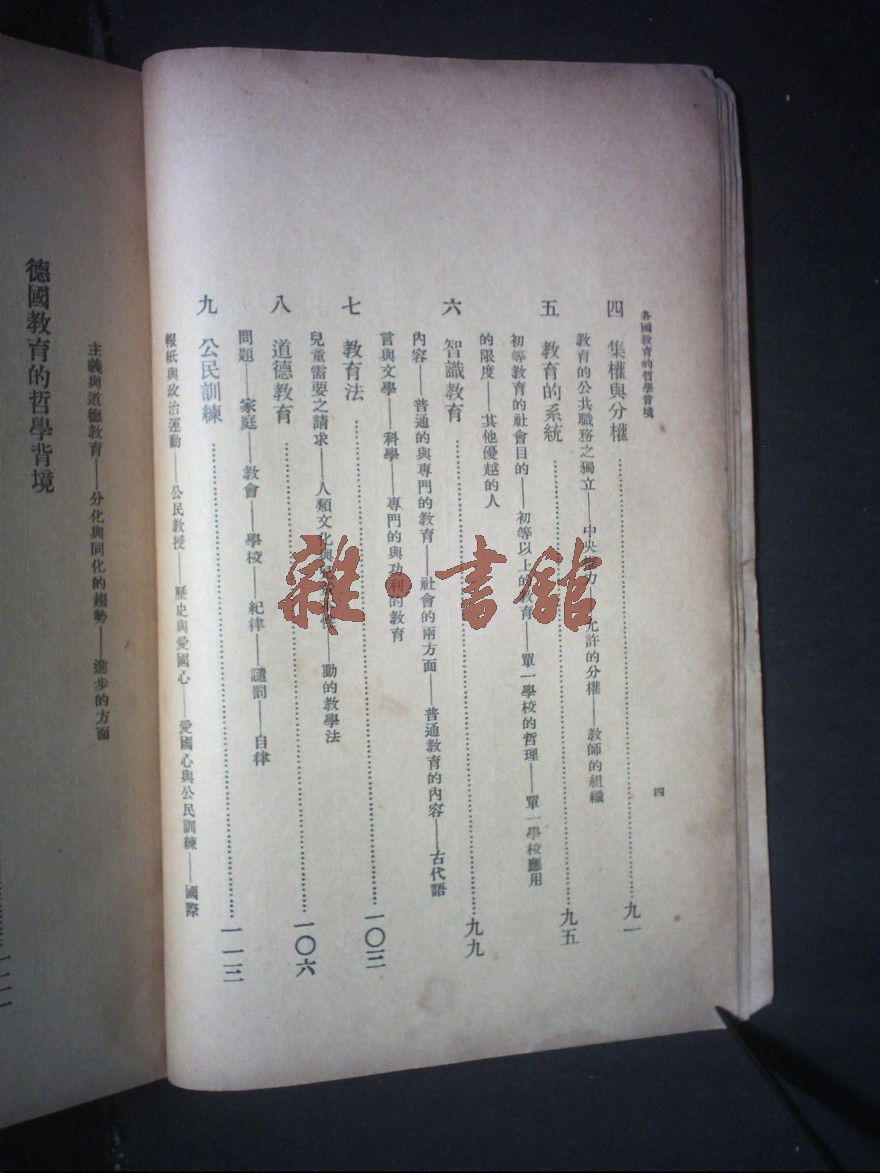 各國教育的哲學背境
四
四 集權與分權……九一
教育的公共職務之獨立——中央 力——允許的分權——教師的組織
五 教育的系統……九五
初等教育的社會目的——初等以上的教育——單一學校的哲理——單一學校應用
的限度——其他優越的人
六 智識教育……九九
內容——普通的與專門的教育——社會的兩方面——普通教育的內容——古代語
言與文學——科學——專門的與功利的教育
七 教育法……一〇三
兒童需要之請求——人類文化與 ——動的教學法
八 道德教育……一〇六
問題——家庭——教會——學校——紀律——譴罰——自律
九 公民訓練……一一三
報紙與政治運動——公民教授——歷史與愛國心——愛國心與公民訓練——國際
主義與道德教育——分化與同化的趨勢——進步的方面
德國教育的哲學背境
雜·書館